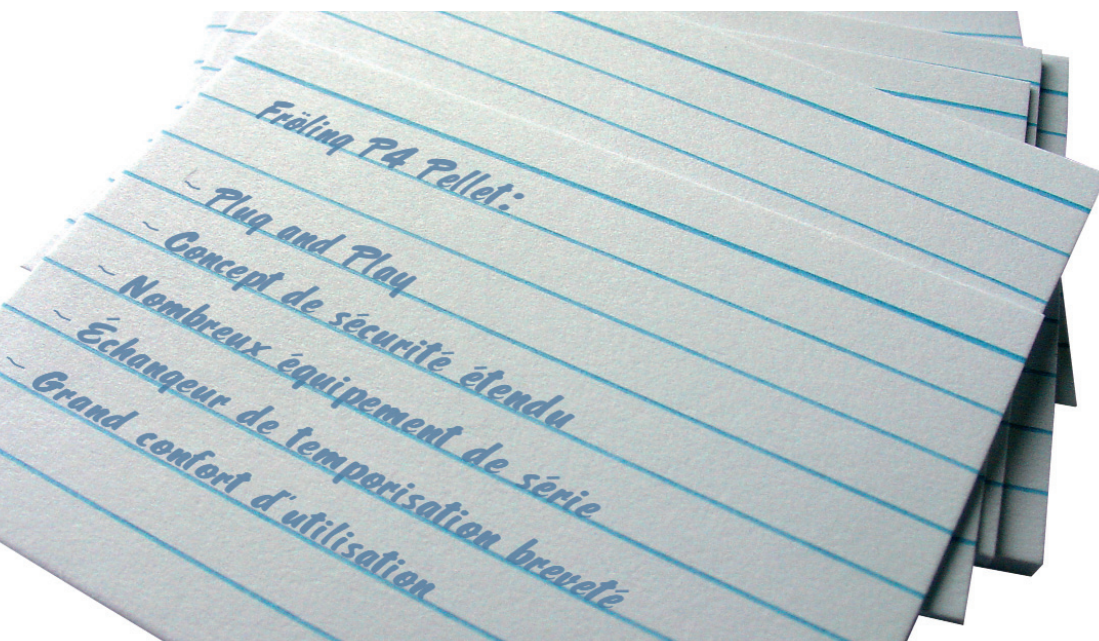 Fröling P4 Pellet:
~ Plug and Play
~ Concept de sécurité étendu
~ Nombreux équipement de série
~ Échangeur de temporisation breveté
~ Grand confort d'utilisation